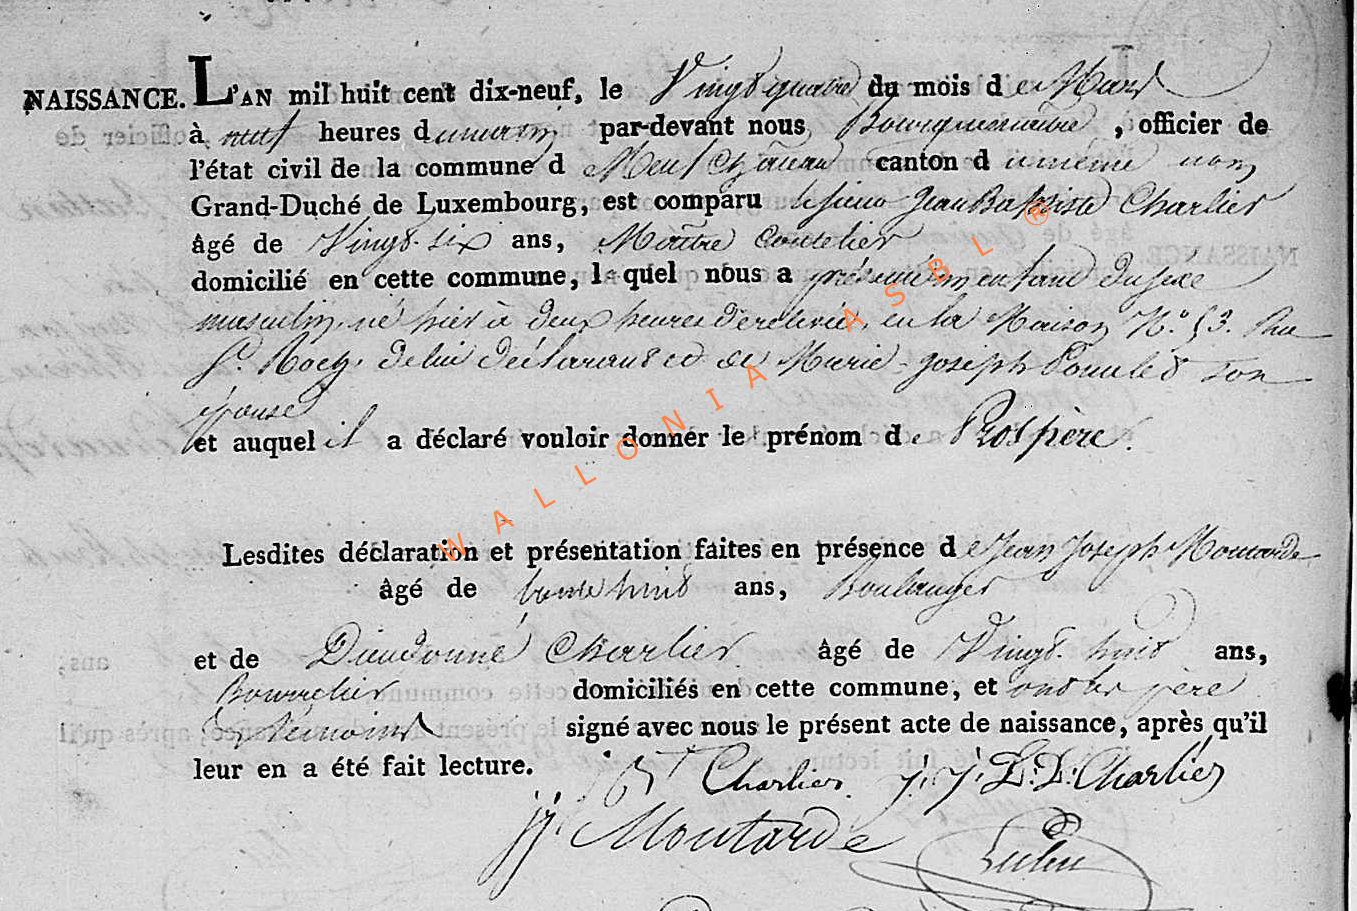 NAISSANCE. L'AN mil huit cent dix-neuf, le Vingt quatre du mois de Mars
à neuf heures du matin par-devant nous Bourguemaitre, officier de
l'état civil de la commune d Neufchâteau canton du même nom
Grand-Duché de Luxembourg, est comparu le sieur Jean Baptiste Charlier
âgé de Vingt-six ans, Maitre Coutelier
domicilié en cette commune, lequel nous a présenté un enfant du sexe
masculin, né hier à deux heures de relevée, en la Maison N.° 53. Rue
St. Roch, de lui déclarant et de Marie-joseph son
épouse
et auquel il a déclaré vouloir donner le prénom de Prospère.
Lesdites déclaration et présentation faites en présence de Jean Joseph Moutarde
âgé de trente huit ans, Boulanger
et de Dieudonné Charlier âgé de Vingt-huit ans,
Bourrelier domiciliés en cette commune, et ont les père
& témoins signé avec nous le présent acte de naissance, après qu'il
leur en a été fait lecture.
j. Bt Charlier. j. j. D. D. Charlier
j j. Moutarde
WALLONIA ASBL ®